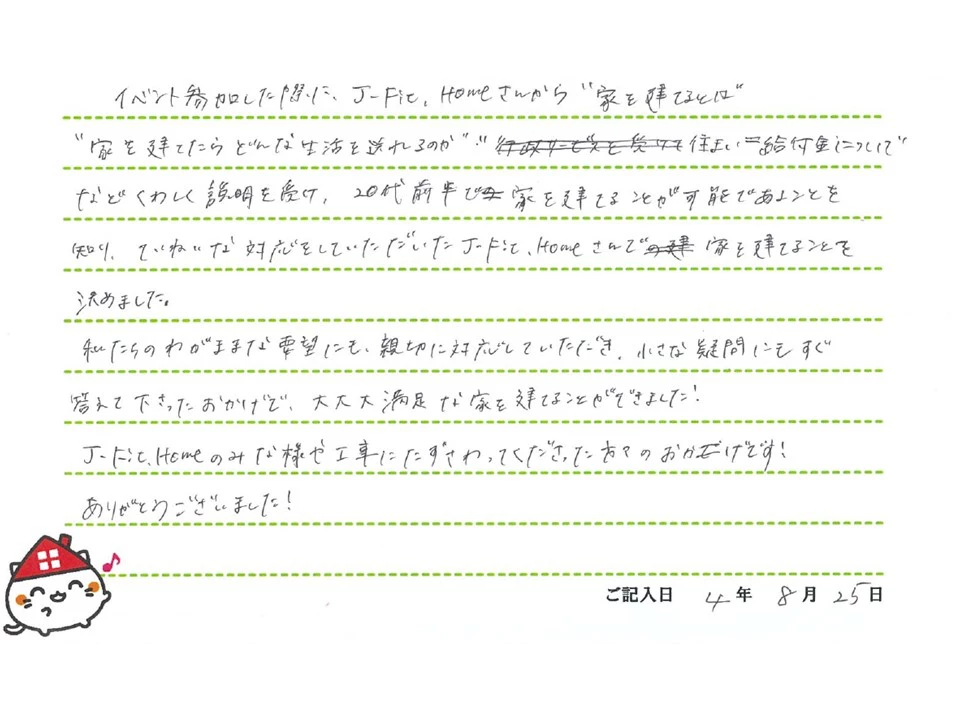 イベント参加した際に、J-Fit.Homeさんから "家を建てるとは"
"家を建てたらどんな生活を送れるのか" "住まい給付金について"
などくわしく説明を受け、20代前半で家を建てることが可能であることを
知り、ていねいな対応をしていただいたJ-Fit.Homeさんで家を建てることを
決めました。
私たちのわがままな要望にも、親切に対応していただき、小さな疑問にもすぐ
答えて下さったおかげで、大大大満足な家を建てることができました!
J-Fit.Homeのみな様や工事にたずさわってくださった方々のおかげです!
ありがとうございました!
ご記入日 4年 8月 25日